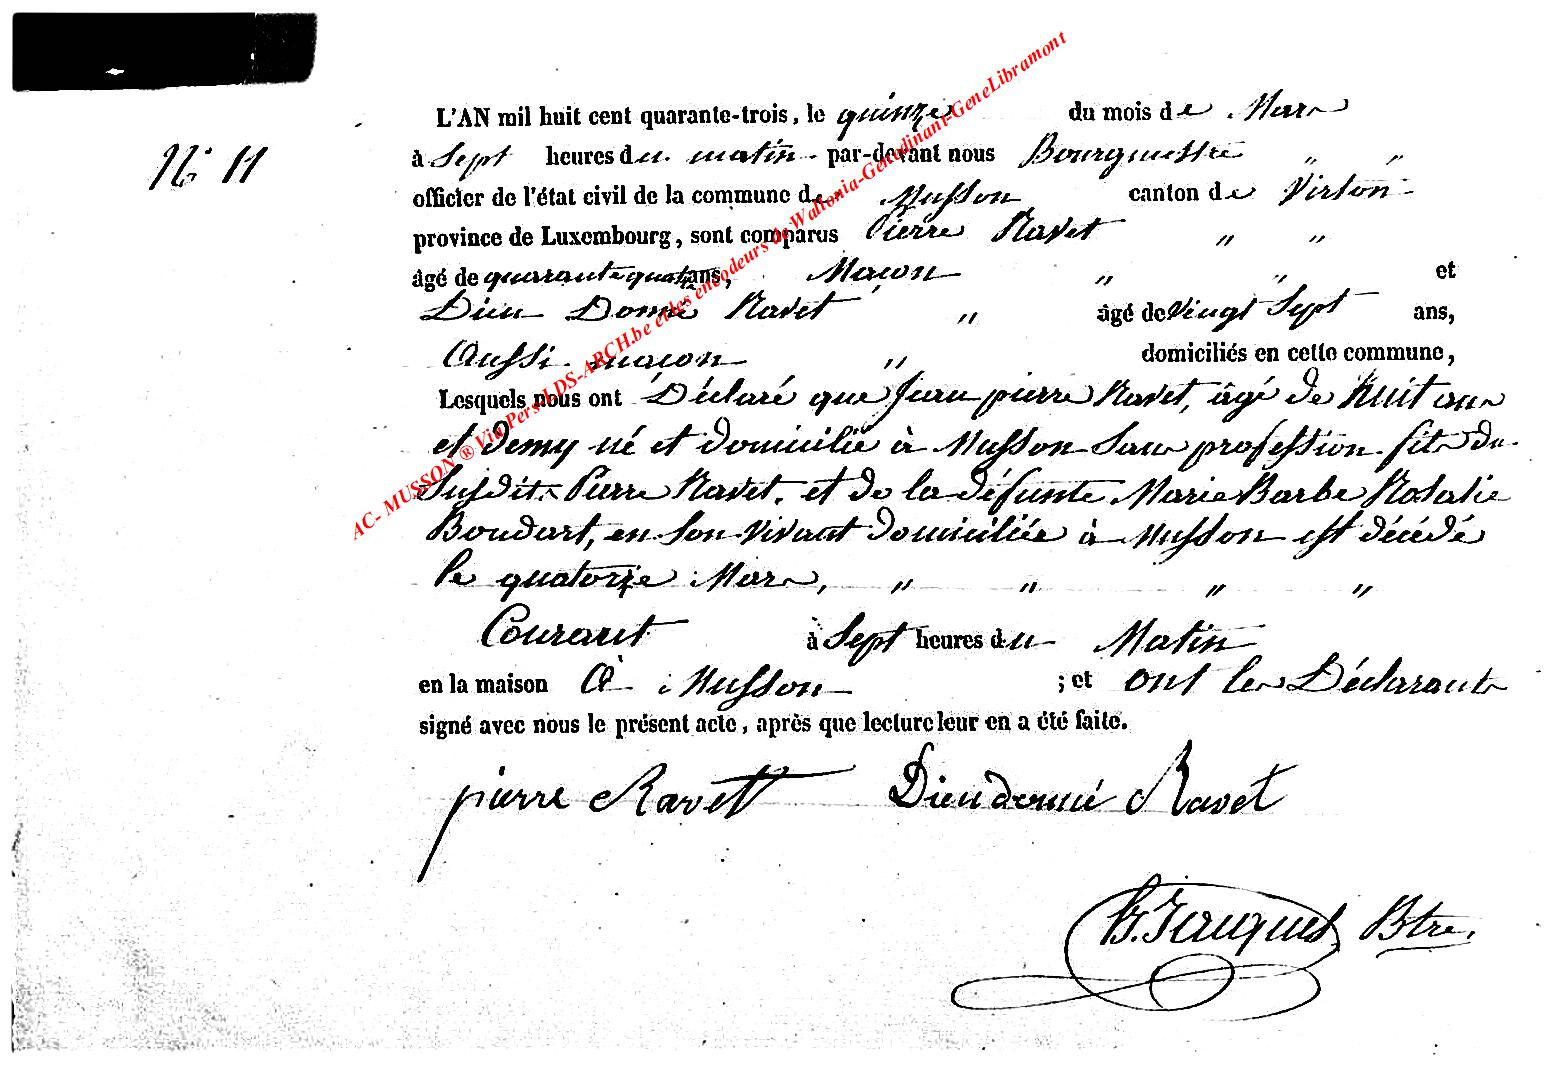 L'AN mil huit cent quarante-trois, le quinze du mois de Mars
N° 11
à Sept heures du matin par-devant nous Bourgmestre " "
officier de l'état civil de la commune de Musson canton de Virton
province de Luxembourg, sont comparus Pierre Ravet " "
âgé de quarante quatre ans, Macon " " et
Dieu Donné Ravet " âgé de vingt Sept ans,
Aussi macon " domiciliés en cette commune,
Lesquels nous ont Déclaré que Jean pierre Ravet, âgé de huit ans
et demy né et domicilié à Musson Sans profession fils du
Susdit Pierre Ravet, et de la défunte Marie Barbe Rosalie
Boudart, en Son vivant domiciliée à Musson est décédé
le quatorze Mars, " " " "
Courant à Sept heures du Matin
en la maison à Musson ; et ont les Déclarants
signé avec nous le présent acte, après que lecture leur en a été faite.
pierre Ravet Dieudonné Ravet
Jacques Btre.
AC- MUSSON ® Via Pers-LDS-ARCH.be et les encodeurs de Wallonia-Genedinant-GeneLibramont